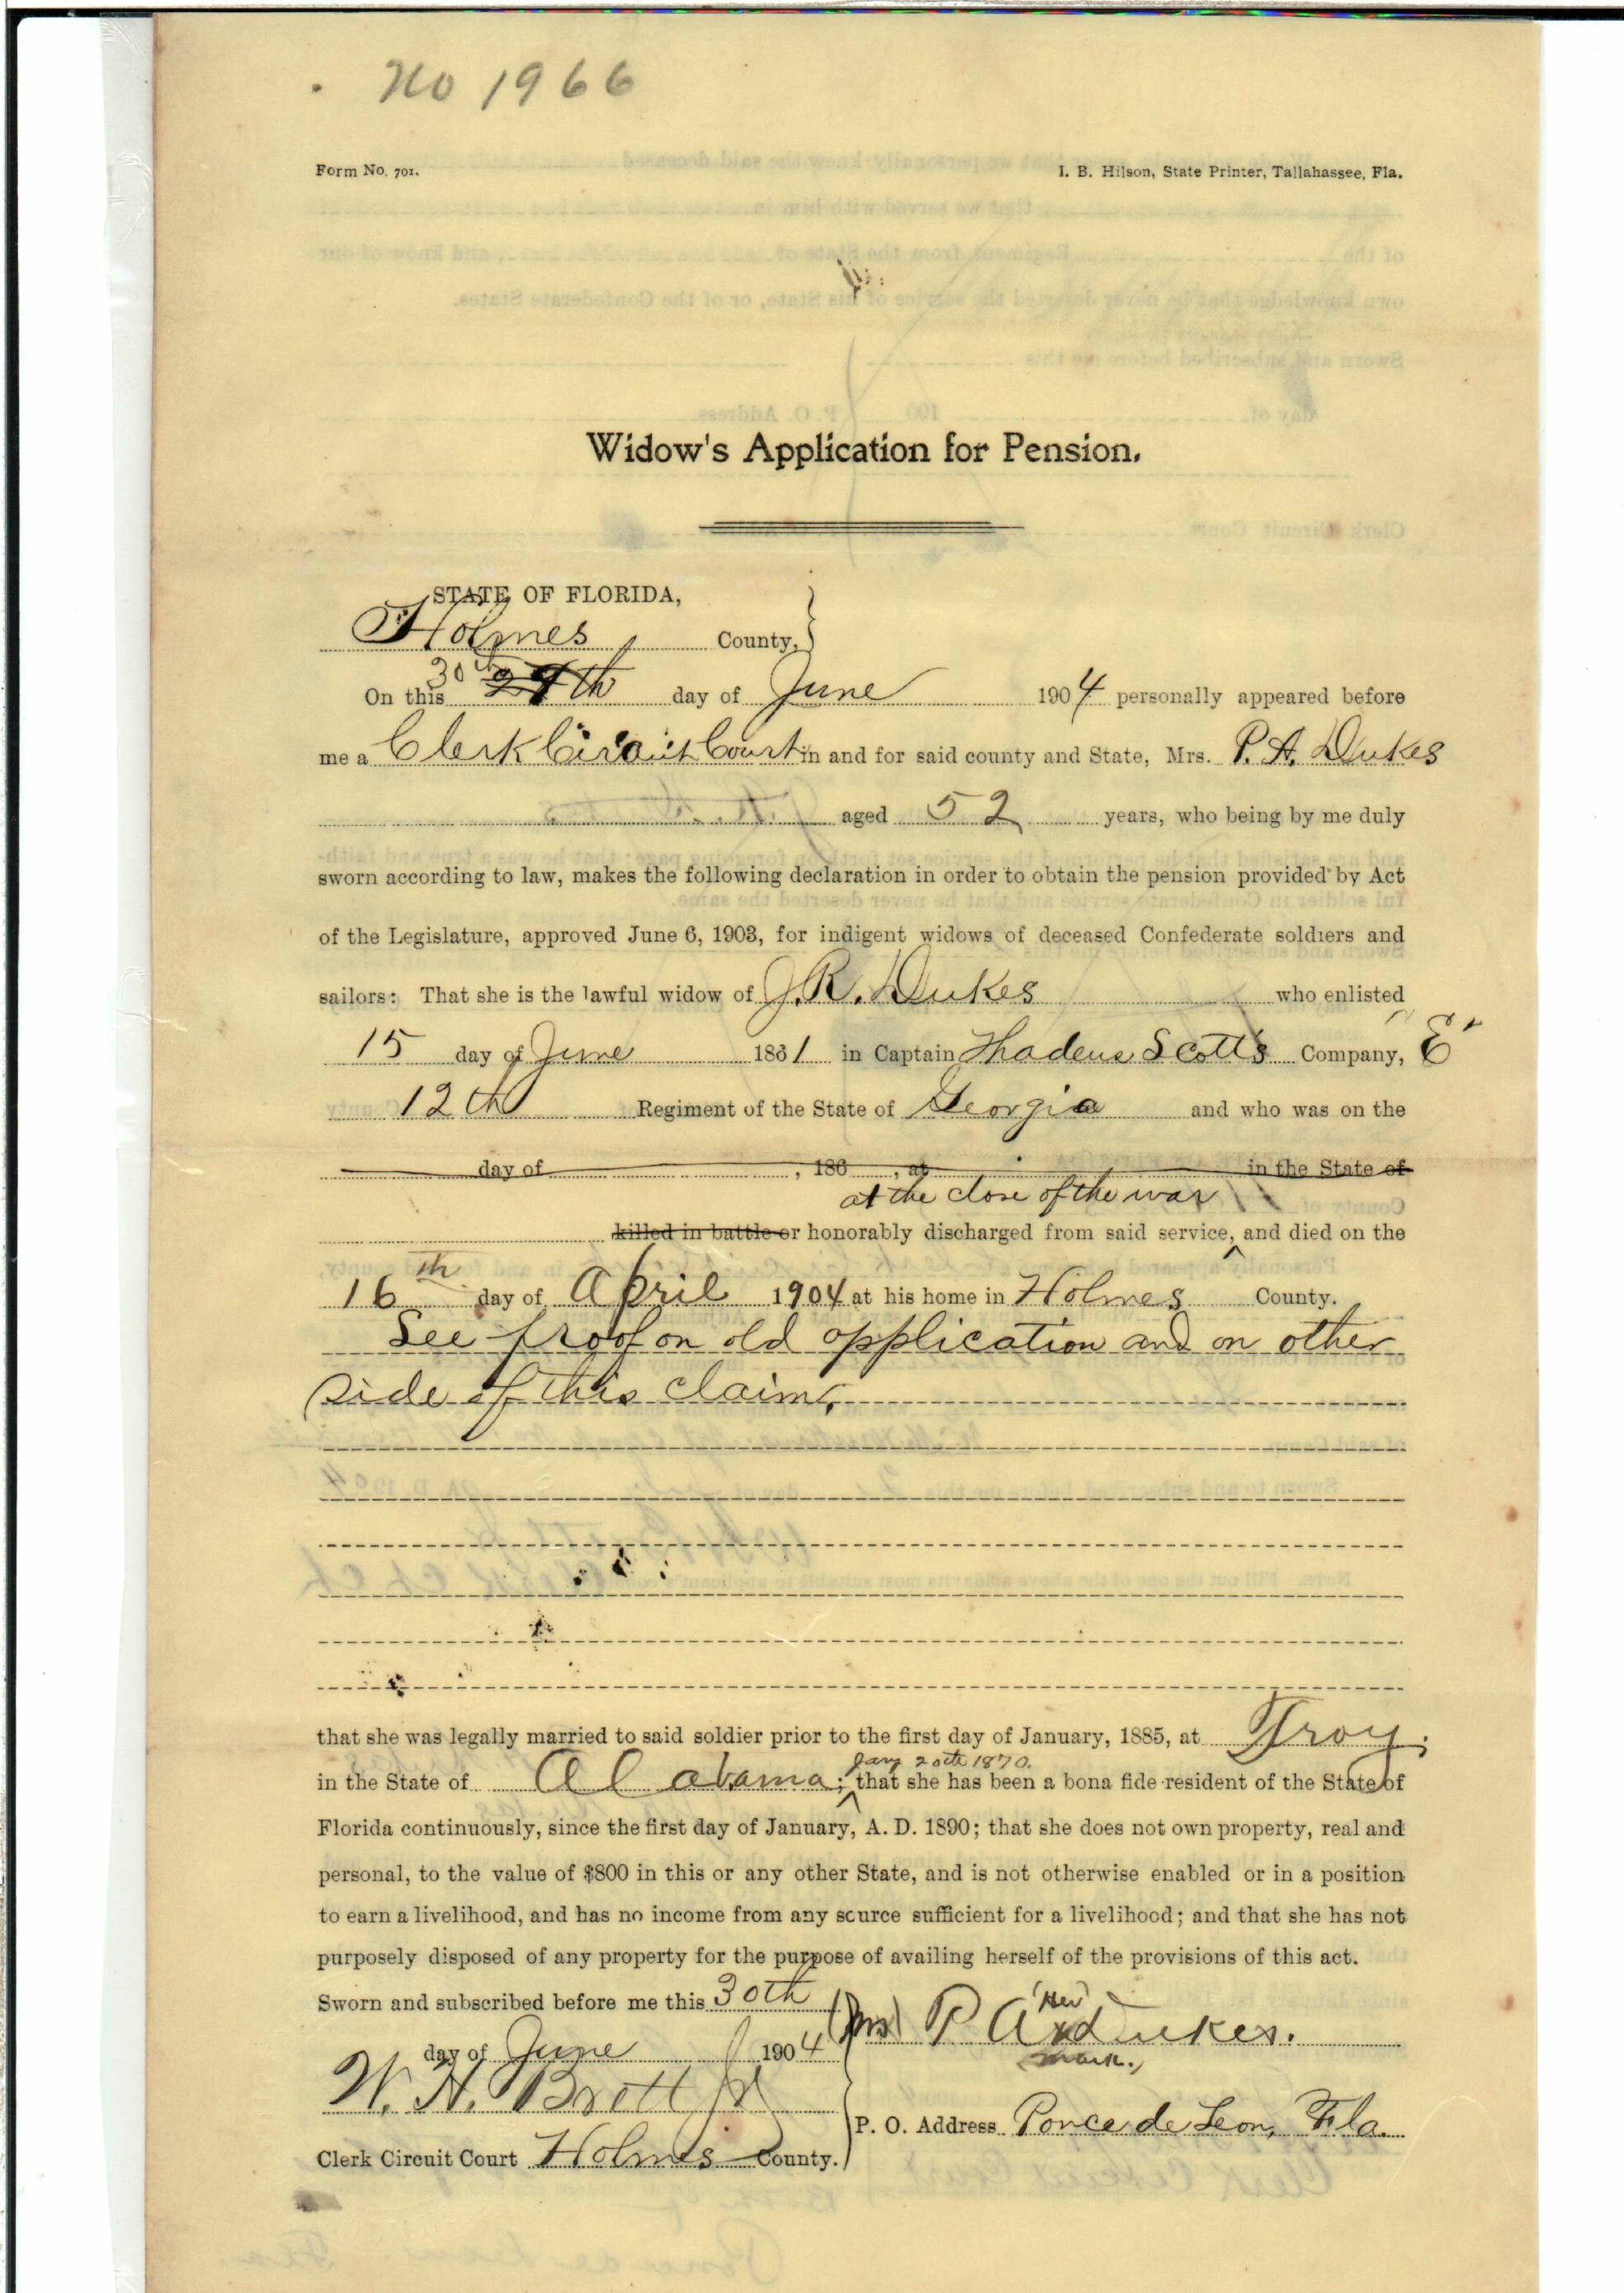 No 1966
Form No. 701.
I. B. Hilson, State Printer, Tallahassee, Fla.
Widow's Application for Pension.
STATE OF FLORIDA,
Holmes County,
On this 30th 29th day of June 1904 personally appeared before
me a Clerk Circuit Court in and for said county and State, Mrs. P. A. Dukes
aged 52 years, who being by me duly
sworn according to law, makes the following declaration in order to obtain the pension provided by Act
of the Legislature, approved June 6, 1903, for indigent widows of deceased Confederate soldiers and
sailors: That she is the lawful widow of J. R. Dukes who enlisted
15 day of June 1861 in Captain Thadeus Scott's Company, "E"
12th Regiment of the State of Georgia and who was on the
day of , 186 , at in the State of
at the close of the war
killed in battle or honorably discharged from said service, and died on the
16th day of April 1904 at his home in Holmes County.
See proof on old application and on other
side of this claim.
that she was legally married to said soldier prior to the first day of January, 1885, at Troy,
Jany 20th 1870.
in the State of Alabama; that she has been a bona fide resident of the State of
Florida continuously, since the first day of January, A. D. 1890; that she does not own property, real and
personal, to the value of $800 in this or any other State, and is not otherwise enabled or in a position
to earn a livelihood, and has no income from any source sufficient for a livelihood; and that she has not
purposely disposed of any property for the purpose of availing herself of the provisions of this act.
Sworn and subscribed before me this 30th
day of June 1904
(Mrs) P A her x mark Dukes.
W. H. Brett Jr
P. O. Address Ponce de Leon, Fla.
Clerk Circuit Court Holmes County.